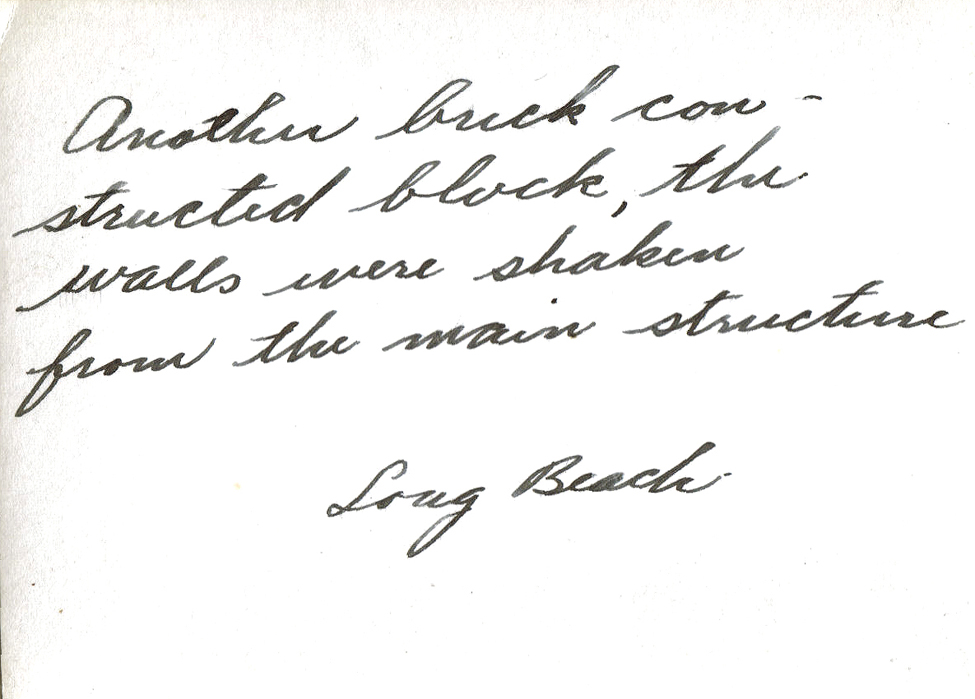 Another brick con-
structed block, the
walls were shaken
from the main structure
Long Beach